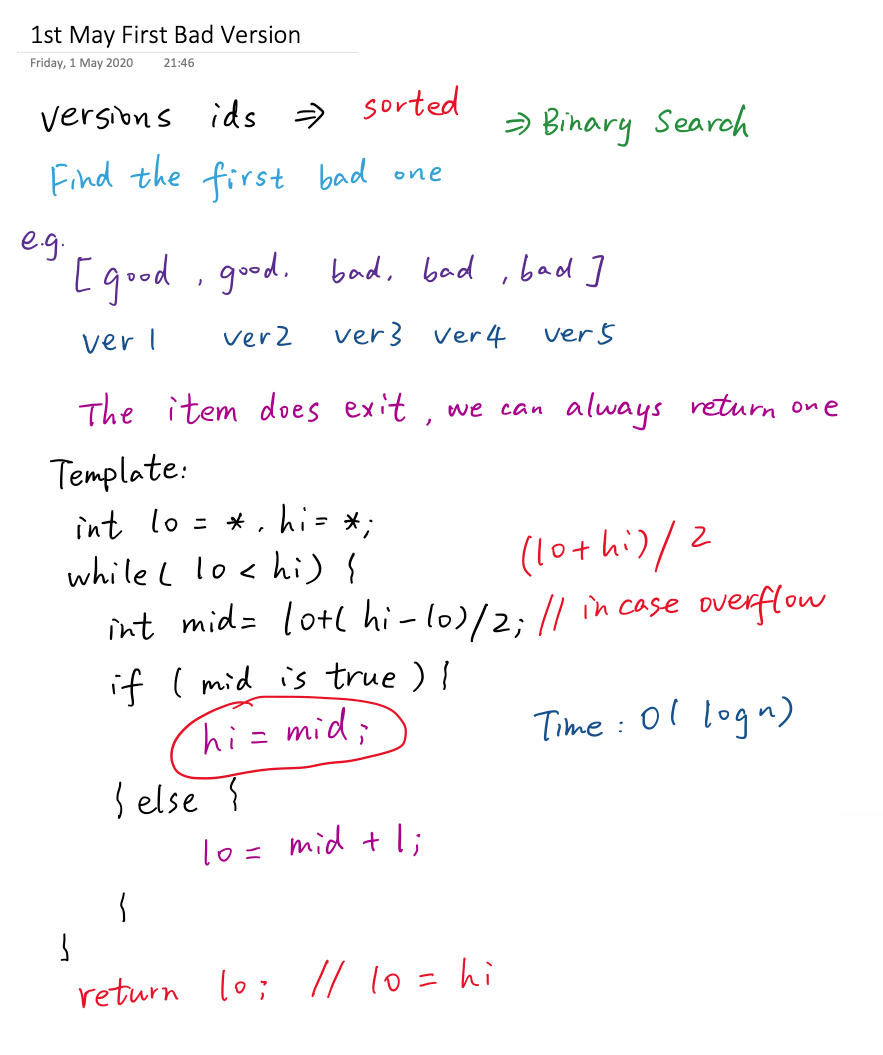 1st May First Bad Version
Friday, 1 May 2020 21:46
versions ids ⇒ sorted ⇒ Binary Search
Find the first bad one
e.g.
[ good , good. bad. bad , bad ]
ver 1 ver2 ver3 ver4 ver5
The item does exit , we can always return one
Template:
int lo = * . hi = *;
(lo+hi)/2
while( lo < hi) {
int mid= lo+( hi-lo)/2; // in case overflow
if ( mid is true ) {
hi = mid;
Time : O( logn)
} else {
lo = mid + 1;
{
}
return lo; // lo = hi